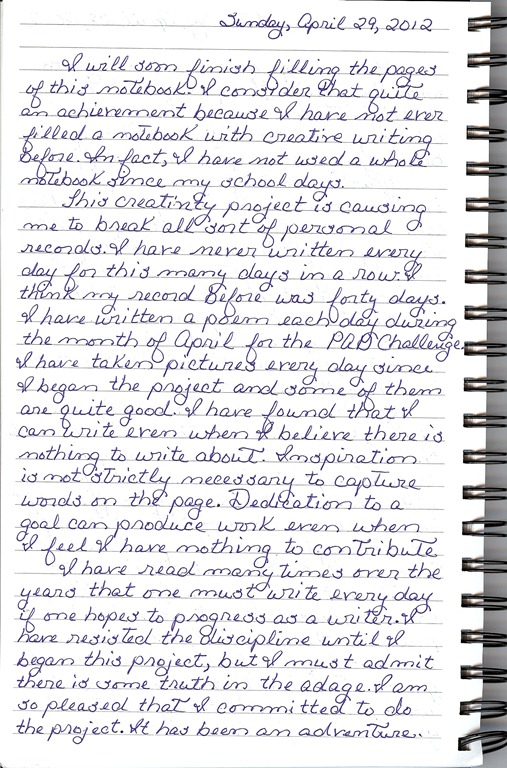 Sunday, April 29, 2012
I will soon finish filling the pages
of this notebook. I consider that quite
an achievement because I have not ever
filled a notebook with creative writing
before. In fact, I have not used a whole
notebook since my school days.
This creativity project is causing
me to break all sort of personal
records. I have never written every
day for this many days in a row. I
think my record before was forty days.
I have written a poem each day during
the month of April for the PAD Challenge.
I have taken pictures every day since
I began the project and some of them
are quite good. I have found that I
can write even when I believe there is
nothing to write about. Inspiration
is not strictly necessary to capture
words on the page. Dedication to a
goal can produce work even when
I feel I have nothing to contribute.
I have read many times over the
years that one must write every day
if one hopes to progress as a writer. I
have resisted the discipline until I
began this project, but I must admit
there is some truth in the adage. I am
so pleased that I committed to do
the project. It has been an adventure.